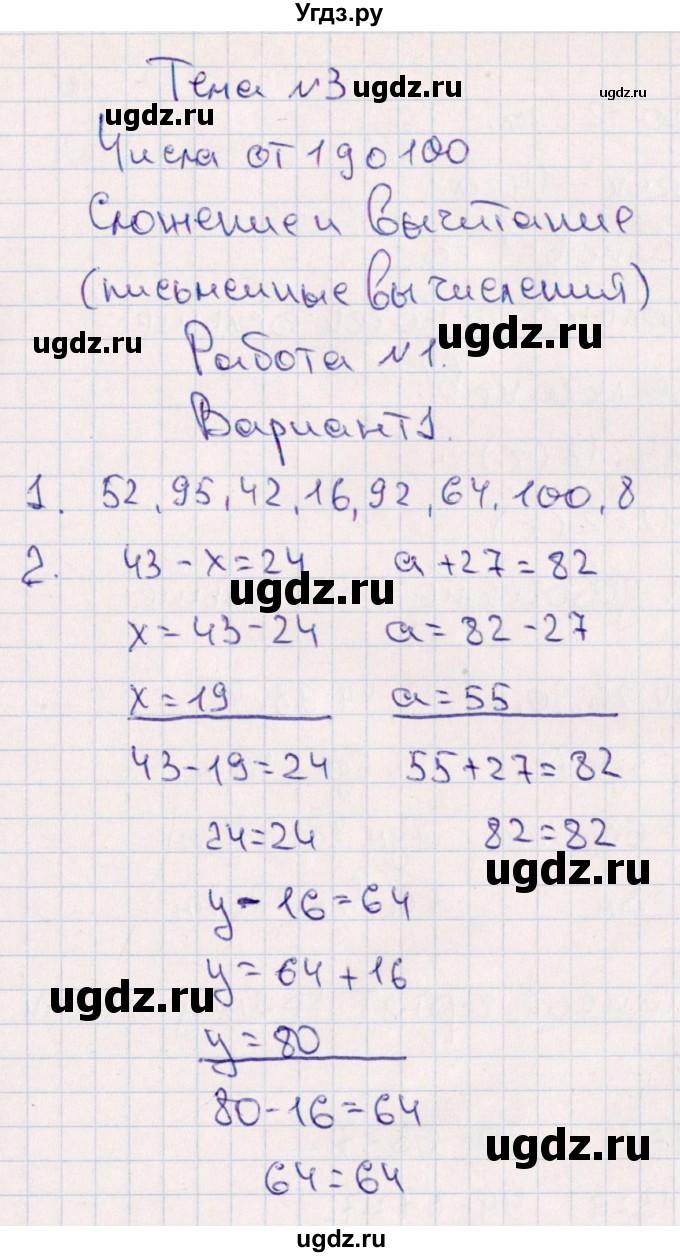 Угдз.ру
Тема №3 ugdz.ru ugdz.ru
ugdz.ru
Числа от 1 до 100
Сложение и вычитание
(письменные вычисления)
ugdz.ru Работа №1. ugdz.ru
Вариант 1.
1. 52, 95, 42, 16, 92, 64, 100, 8
2. 43 - x = 24 a + 27 = 82
ugdz.ru
x = 43 - 24 a = 82 - 27
x = 19 a = 55
43 - 19 = 24 55 + 27 = 82
24 = 24 82 = 82
ugdz.ru
y - 16 = 64
y = 64 + 16
ugdz.ru
y = 80
80 - 16 = 64
ugdz.ru
64 = 64
ugdz.ru